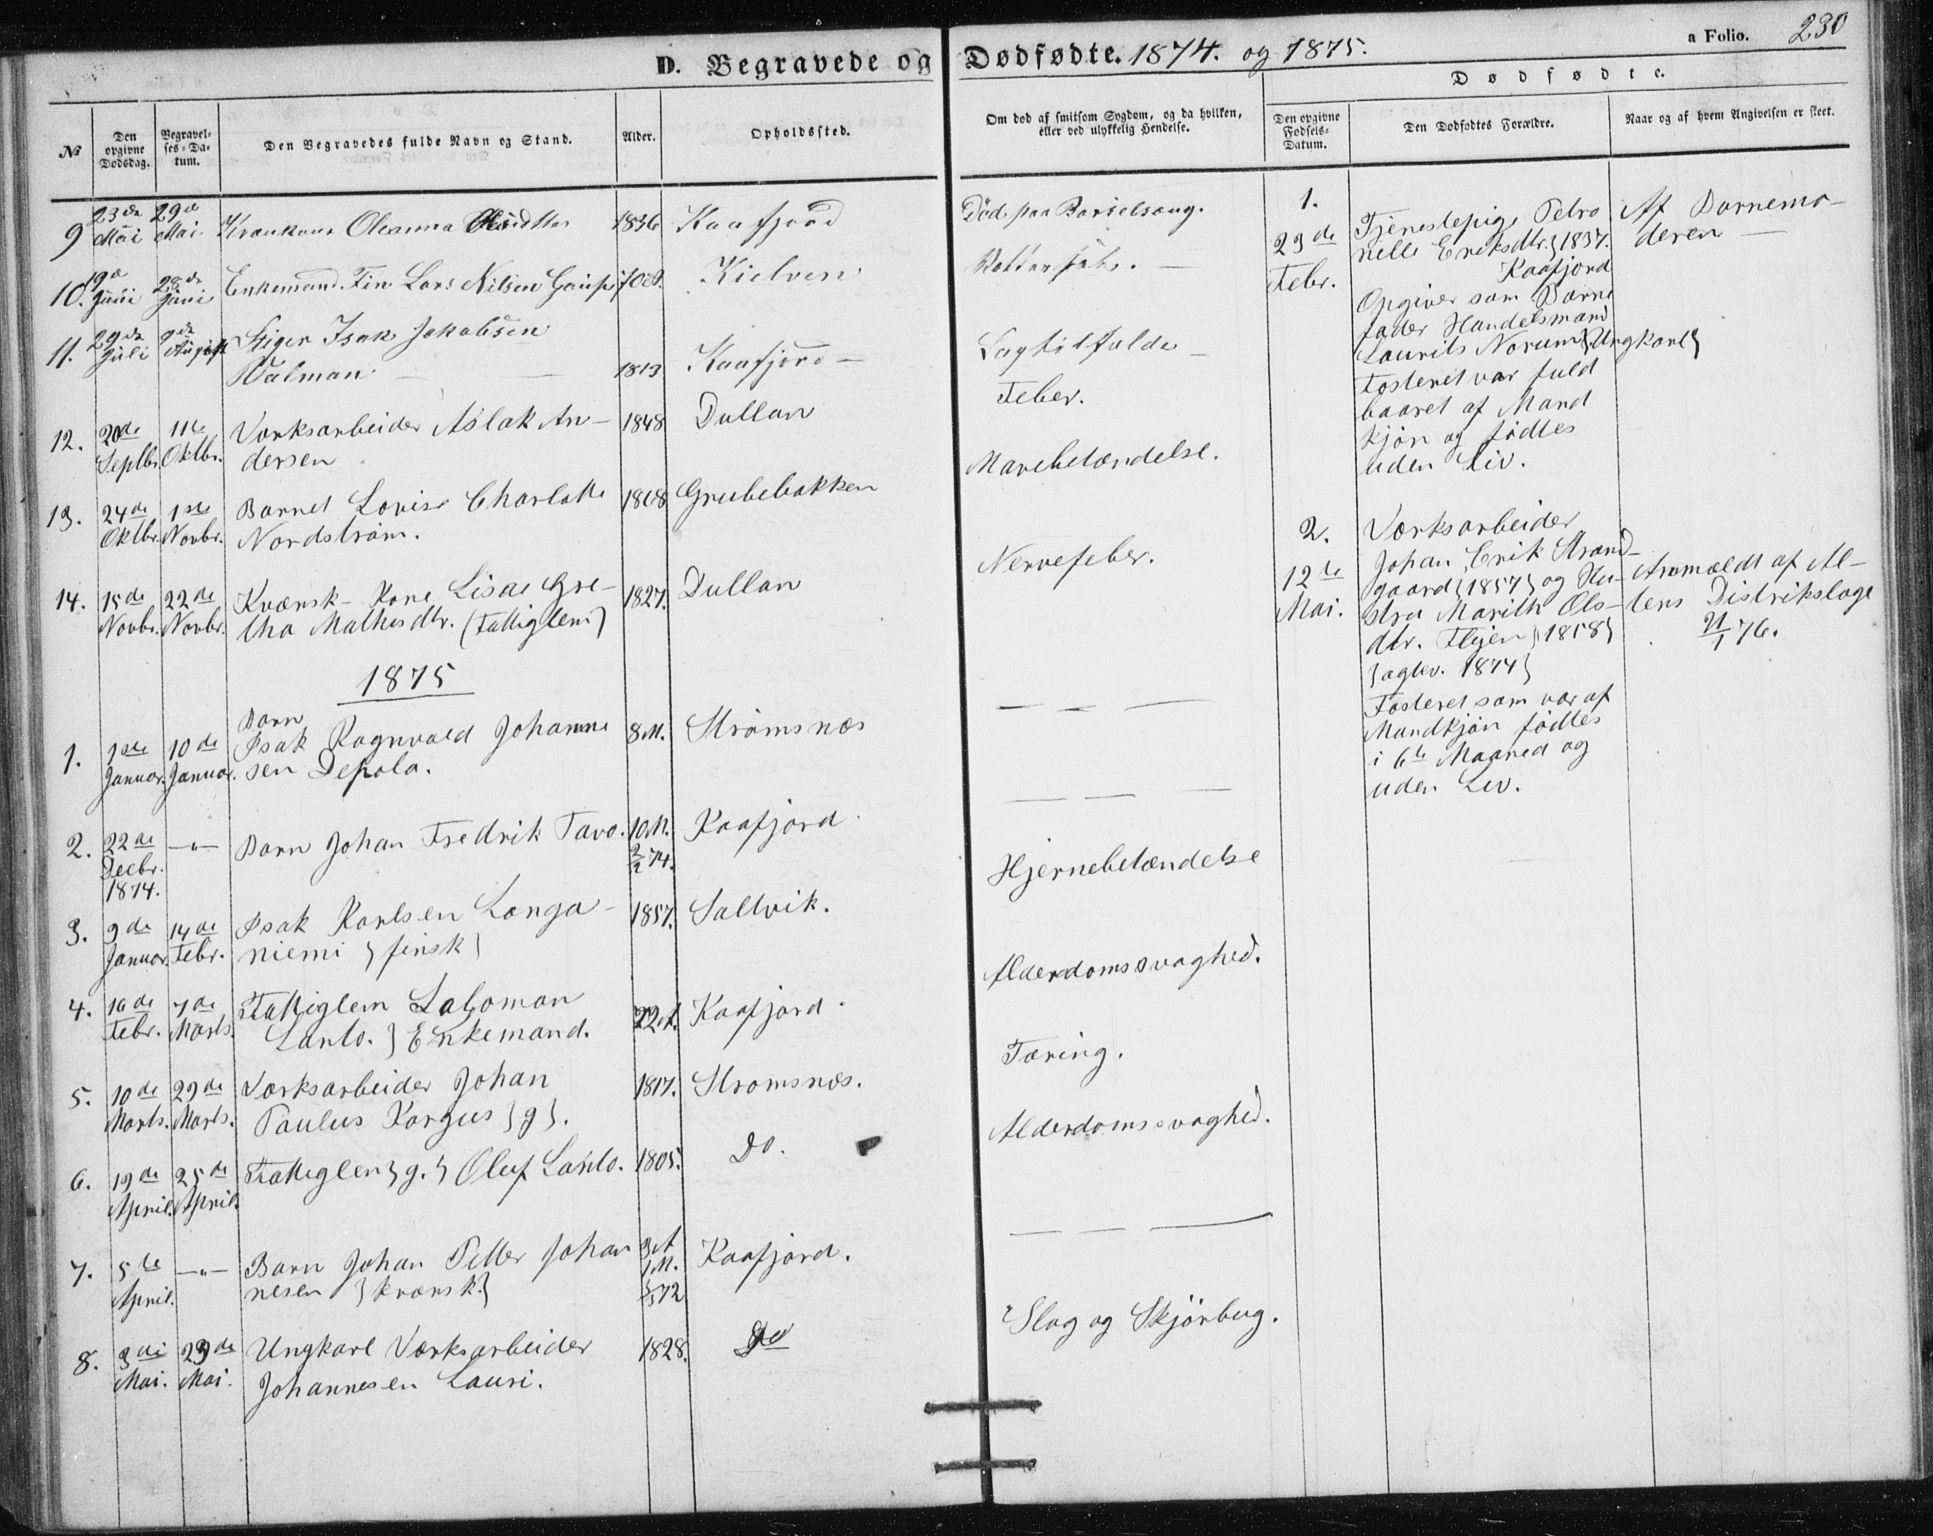 a Folio. 230
D. Begravede og Dødfødte. 1874. og 1875.
Dødfødte.
No
Den opgivne Dødsdag.
Begravelses-Datum.
Den Begravedes fulde Navn og Stand.
Alder.
Opholdssted.
Om død af smitsom Sygdom, og da hvilken, eller ved ulykkelig Hendelse.
Den opgivne Fødsels-Datum.
Den Dødfødtes Forældre.
Naar og af hvem Angivelsen er skeet.
9 23de Mai 29de Mai Oleanna 1836 Kaafjord
Død paa Barselseng.
10. 19de Juni 28de Juni Enkemand Fin Lars Nilsen Gaup Kielven
11. 29de Juli 9de August Stiger Isak Jakobsen
Walman 1813 Kaafjord
12. 20de Septbr. 11te Oktbr. Værksarbeider Aslak An-
dersen 1848 Dullan
Feber.
13. 24de Oktbr. 1ste Novbr. Barnet Lovise Charlotte
Nordstrøm. 1868 Grubebakken
Mavebetændelse.
14. 15de Novbr. 22de Novbr. Kvænsk-Kone Lisae Gre-
tha Mathisdtr. (Fattiglem) 1827. Dullan
Nervefeber.
1875
1. 1ste Januar. 10de Januar. Barn
Isak Ragnvald Johanne
sen Depala. 8 M. Strømsnæs
— — —
2. 22de Decbr. 1874. —"— Barn Johan Fredrik Tavo. 10 M. 2/2 74. Kaafjord.
— — —
Hjernebetændelse
3. 9de Januar. 14de Febr. Isak Karlsen Langa-
niemi } finsk } 1857. Saltvik.
4. 16de Febr. 7de Marts. Fattiglem Salomon
Lanto. } Enkemand. Kaafjord.
Alderdomssvaghed.
5. 10de Marts. 29de Marts. Værksarbeider Johan
Paulus Kargus } g }. 1817. Strømsnæs.
Tæring.
6. 19de April. 25de April. Fattiglem } g. } Oluf Lanto. 1805. Do.
Alderdomssvaghed.
7. 5te April. —"— Barn Johan Petter Johan
nesen } kvænsk } 3 A 1 M. Kaafjord.
— — —
8. 3die Mai. 23de Mai. Ungkarl Værksarbeider
Johannesen Lauri. 1828. Do
Slag og Skjørbug.
1.
23de
Febr.
Tjenestepige Petro
nelle Eriksdtr. } 1837.
Kaafjord
Opgiver som Barne
fader Handelsmand
Laurits Norum } Ungkarl }
Fosteret var fuld
baaret af Mand
kjøn og fødtes
uden Liv.
Af Barnemo-
deren
2.
12te
Mai.
Værksarbeider
Johan Erik Strand-
gaard } 1857 } og Hu-
stru Marith Ols-
dtr. Flyen } 1858 }
} ægtev. 1874 }
Fosteret som var af
Mandkjøn fødtes
i 6te Maaned og
uden Liv.
Anmeldt af Al-
tens Distrikslæge
21/1 76.